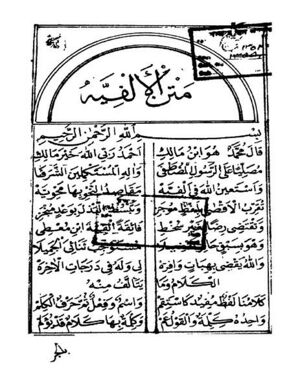 متن الألفيه
بسم الله الرحمن الرحيم
قال محمد هو ابن مالك احمد ربي الله خير مالك
مصليا على الرسول المصطفى واله المستكملين الشرفا
واستعين الله في الفيه مقاصد النحو بها محويه
تقرب الاقصى بلفظ موجز وتبسط البذل بوعد منجز
وتقتضي رضا بغير سخط فائقة الفية ابن معط
وهو بسبق حائز تفضيلا مستوجب ثنائي الجميلا
والله يقضي بهبات وافره لي وله في درجات الآخره
الكلام وما يتالف منه
كلامنا لفظ مفيد كاستقم واسم وفعل ثم حرف الكلم
واحده كلمة والقول عم وكلمة بها كلام قد يؤم